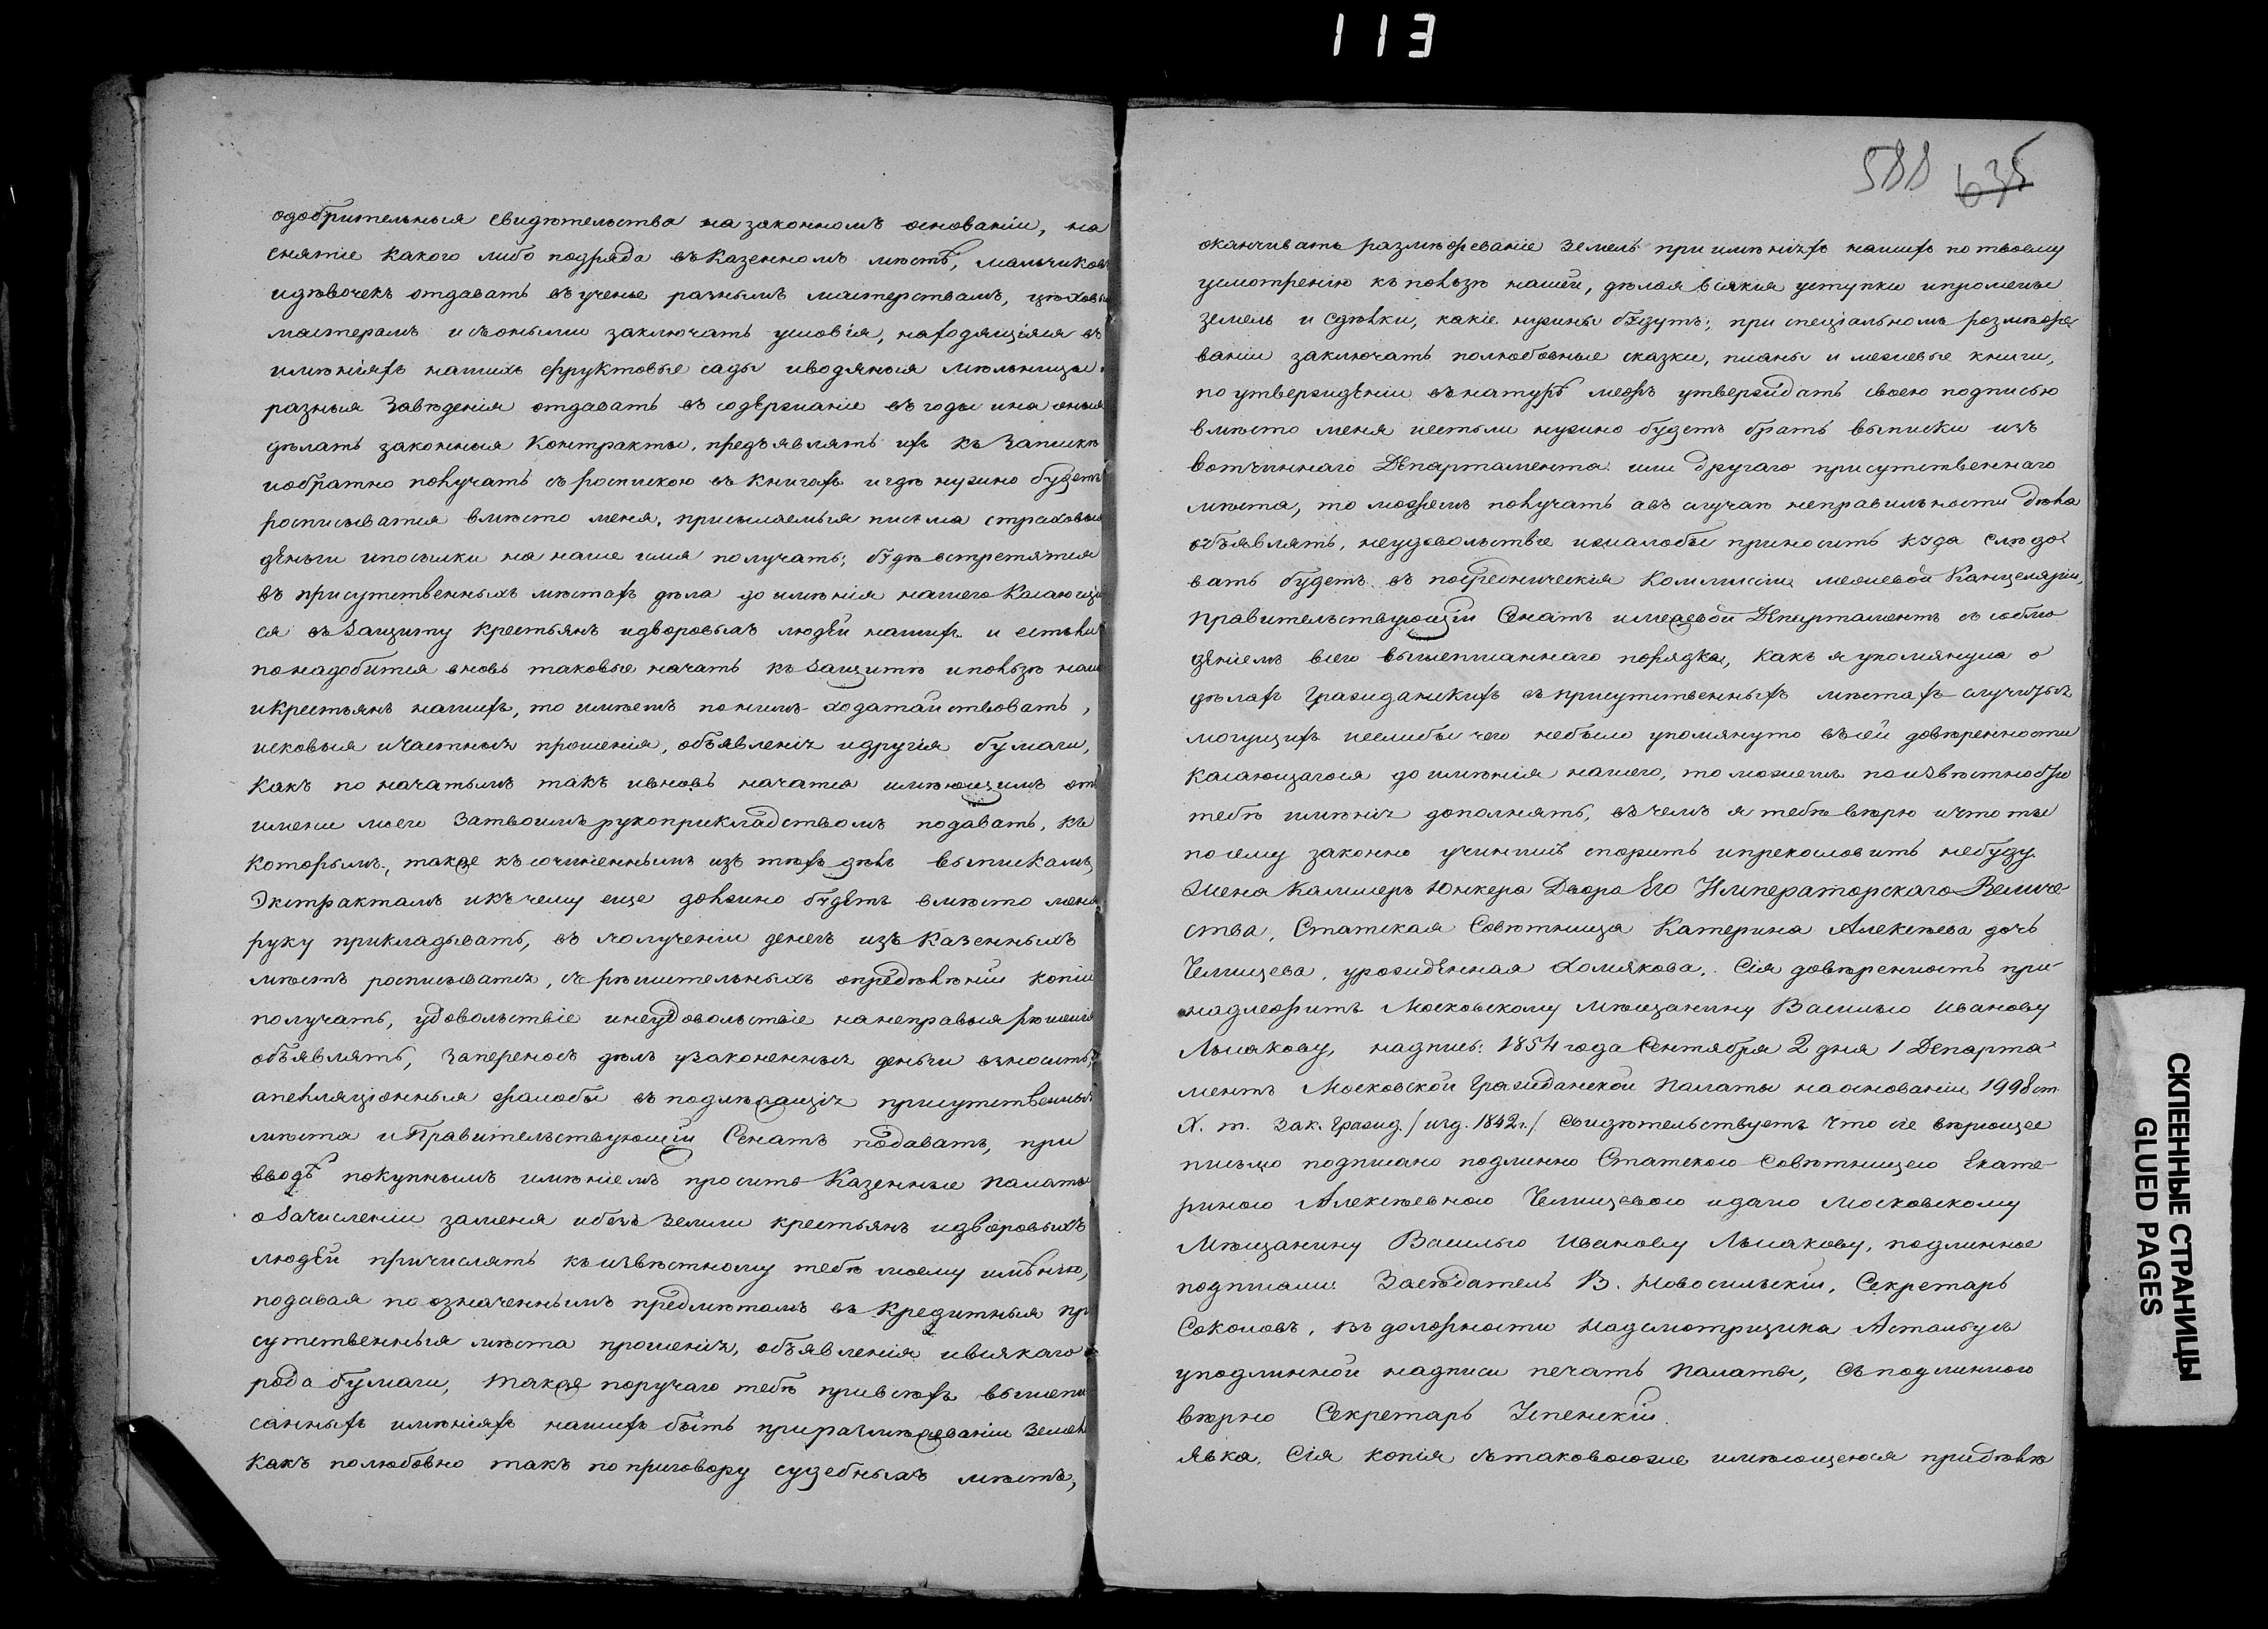 113
одобрительныя свидѣтельства на законномъ основаніи, на
снятіе какого либо подряда въ Казенномъ мѣстѣ, мальчиковъ
и дѣвочекъ отдавать въ ученье разнымъ мастерствамъ, цѣховы
мастерамъ и съ оными заключать условія, находящіяся въ
имѣніяхъ нашихъ фруктовые сады и водяныя мѣльницы
разныя Заведенія отдавать въ содержаніе въ годы и на оныя
дѣлать законныя Контракты, предъявлять ихъ къ Запискѣ
и обратно получать съ роспискою въ книгахъ и гдѣ нужно будетъ
росписыватся вмѣсто меня, присылаемыя письма страховыя
деньги и посылки на наше имя получать; буде встретятся
въ присутственныхъ мѣстахъ дѣла до имѣнія нашего Касающі
ся въ Защиту крестьянъ и дворовыхъ людей нашихъ и естьли
понадобится вновь таковые начать къ Защитѣ и пользѣ наш
и крестьянъ нашихъ, то имѣешь по нимъ ходатайствовать,
исковыя и частныя прошенія, объявленія и другія бумаги,
какъ по начатымъ такъ и вновь начатся имѣющимъ отъ
имени моего За твоимъ рукоприкладствомъ подавать, къ
которымъ, также къ сочиненнымъ изъ тѣхъ дѣлъ выпискамъ,
Экстрактамъ и къ чему еще должно будетъ вмѣсто меня
руку прикладывать, въ полученіи денегъ изъ Казенныхъ
мѣстъ росписыватся, съ рѣшительныхъ опредѣленій копіи
получать, удовольствіе и неудовольствіе на неправыя рѣшенія
объявлять, За переносъ дѣлъ узаконенныя деньги вносить,
апелляціонныя жалобы въ подлежащія присутственныя
мѣста и Правительствующій Сенатъ подавать, при
вводѣ покупнымъ имѣніемъ просить Казенные палаты
о Зачисленіи за меня и безъ Земли крестьянъ и дворовыхъ
людей причислять къ извѣстному тебѣ моему имѣнію,
подавая по означеннымъ предметомъ въ Кредитныя при
сутственныя мѣста прошенія, объявленія и всякаго
рода бумаги, также поручаю тебѣ при всѣхъ вышепи
санныхъ имѣніяхъ нашихъ быть при размежеваніи Земель
какъ полюбовно такъ по приговору судебныхъ мѣстъ,
588 635
оканчивать размежеваніе земель при имѣніяхъ нашихъ по твоему
усмотренію къ пользѣ нашей, дѣлая всякія уступки и променъ
земель и сдѣлки, какіе нужны будутъ; при спеціальномъ размеже
ваніи заключать полюбовные сказки, планы и межевые книги,
по утвержденіи въ натурѣ межъ утверждать своею подписью
вмѣсто меня и естьли нужно будетъ брать выписки изъ
вотчиннаго Департамента или другаго присутственнаго
мѣста, то можешь получать а въ случаѣ неправильности дѣла
объявлять, неудовольствіе и жалобы приносить куда слѣдо
вать будетъ въ посредническія Коммиссіи, межевой Канцеляріи,
Правительствующій Сенатъ и межевой Департаментъ съ соблю
деніемъ всего вышеписаннаго порядка, какъ я упомянула о
дѣлахъ Гражданскихъ въ присутственныхъ мѣстахъ случится
могущихъ и еслибы чего небыло упомянуто въ сей довѣренности
касающагося до имѣнія нашего, то можешь по извѣстному
тебѣ имѣнія дополнять, въ чемъ я тебѣ вѣрю и что ты
по сему законно учинишь спорить и прекословить небуду.
Жена Каммеръ Юнкера Двора Его Императорскаго Величе-
ства, Статская Совѣтница Катерина Алексѣева дочь
Челищева, урожденная Хомякова. Сія довѣренность при-
надлежитъ Московскому Мѣщанину Василью Иванову
Лысакову, надпись: 1854 года Сентября 2 дня 1 Департа-
ментъ Московской Гражданской Палаты на основаніи 1998 ст.
X. т. Зак. Гражд. /изд. 1842 г./ свидѣтельствуетъ что сіе вѣрющее
письмо подписано подлинно Статскою Совѣтницею Екате-
риною Алексѣевною Челищевою и дано Московскому
Мѣщанину Василью Иванову Лысакову, подлинное
подписали: Засѣдатель В. Новосильскій, Секретарь
Соколовъ, въ должности Надсмотрщика
у подлинной надписи печать Палаты, Съ подлинною
вѣрно Секретарь Успенскій.
Явка, Сія копія съ таковоюже имѣющеюся при дѣлѣ
СКЛЕЕННЫЕ СТРАНИЦЫ
GLUED PAGES